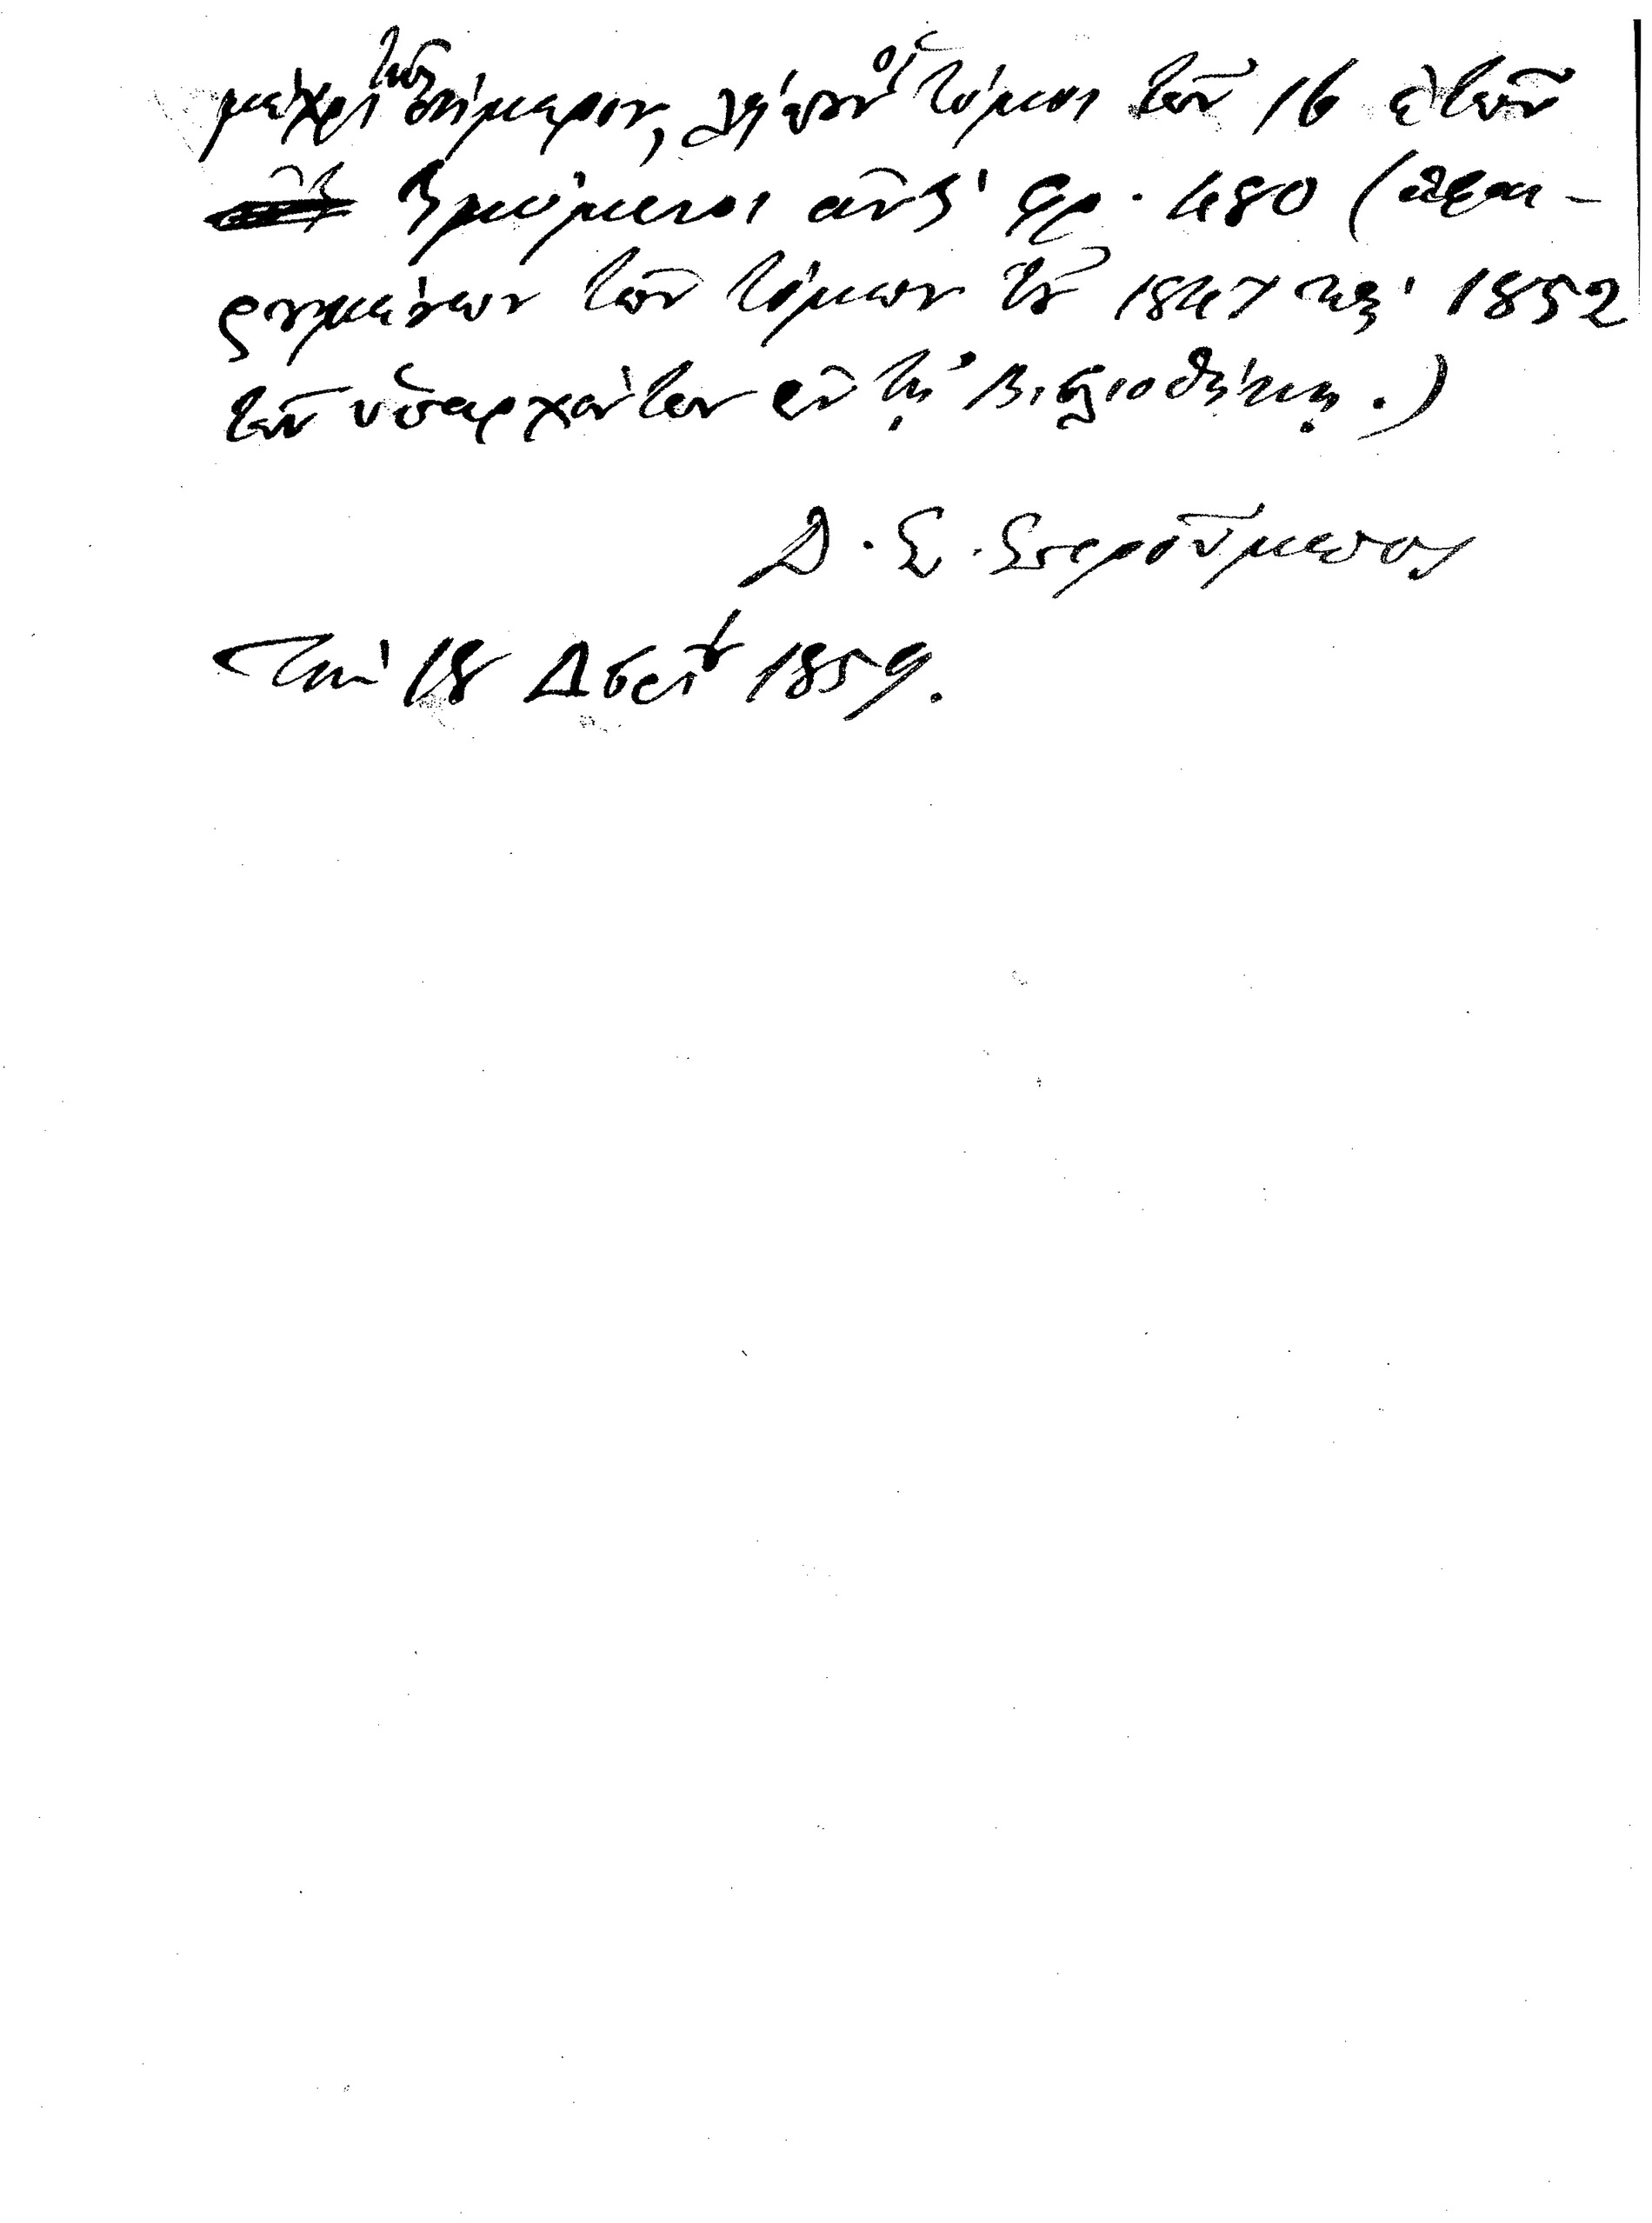 μέχρι τῆς σήμερον, λείπουν οἱ τόμοι τῶν 16 ἐτῶν
τιμώμενοι ἀντὶ φρ. 480 (ἐξαι-
ρουμένων τῶν τόμων τοῦ 1847 καὶ 1852
τῶν ὑπαρχόντων ἐν τῇ Βιβλιοθήκῃ.)
Δ. Σ. Στρούμπος
Τὴν 18 Δβρίου 1859.